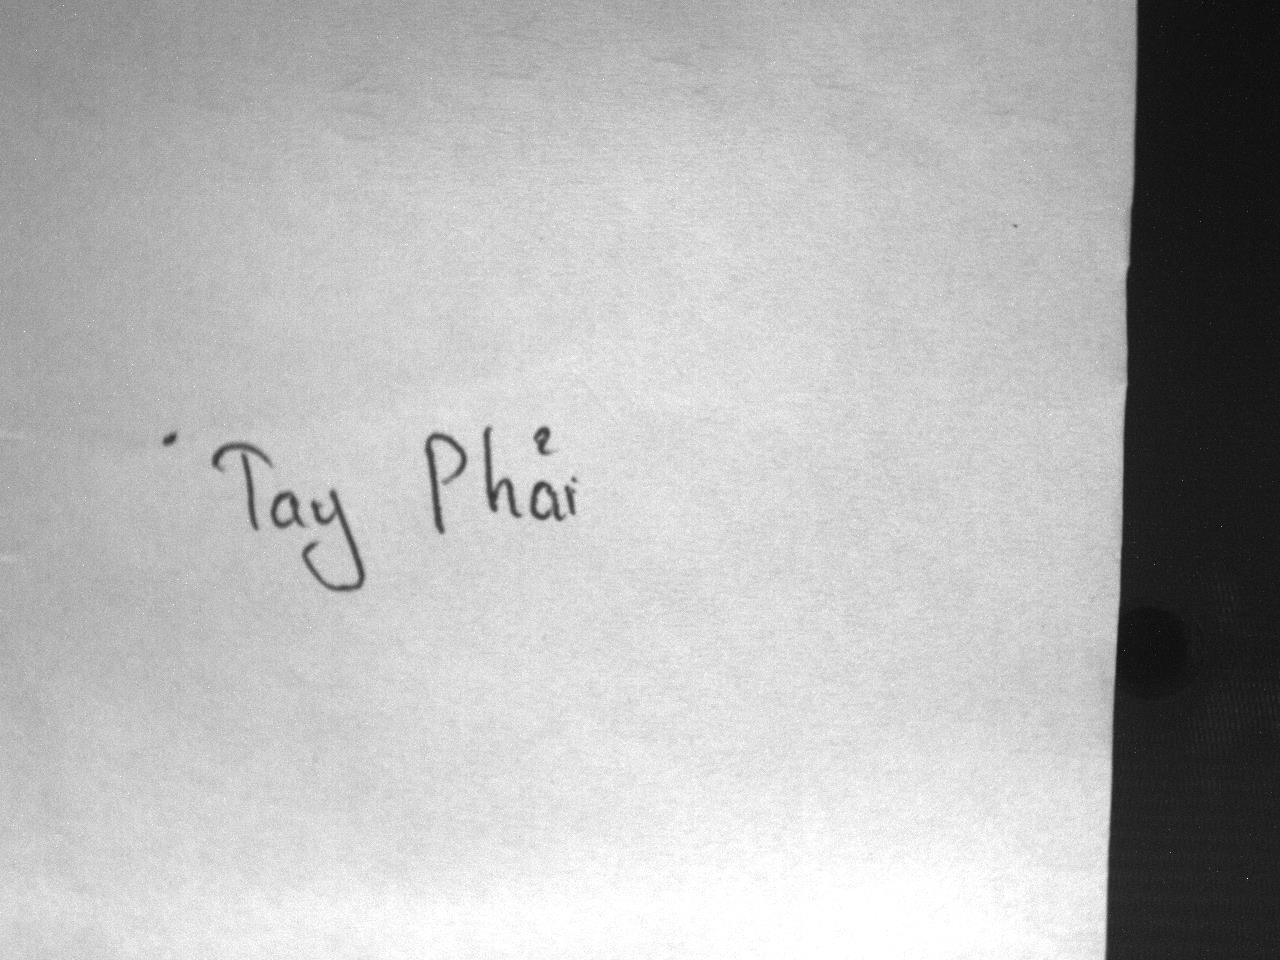 Tay Phải